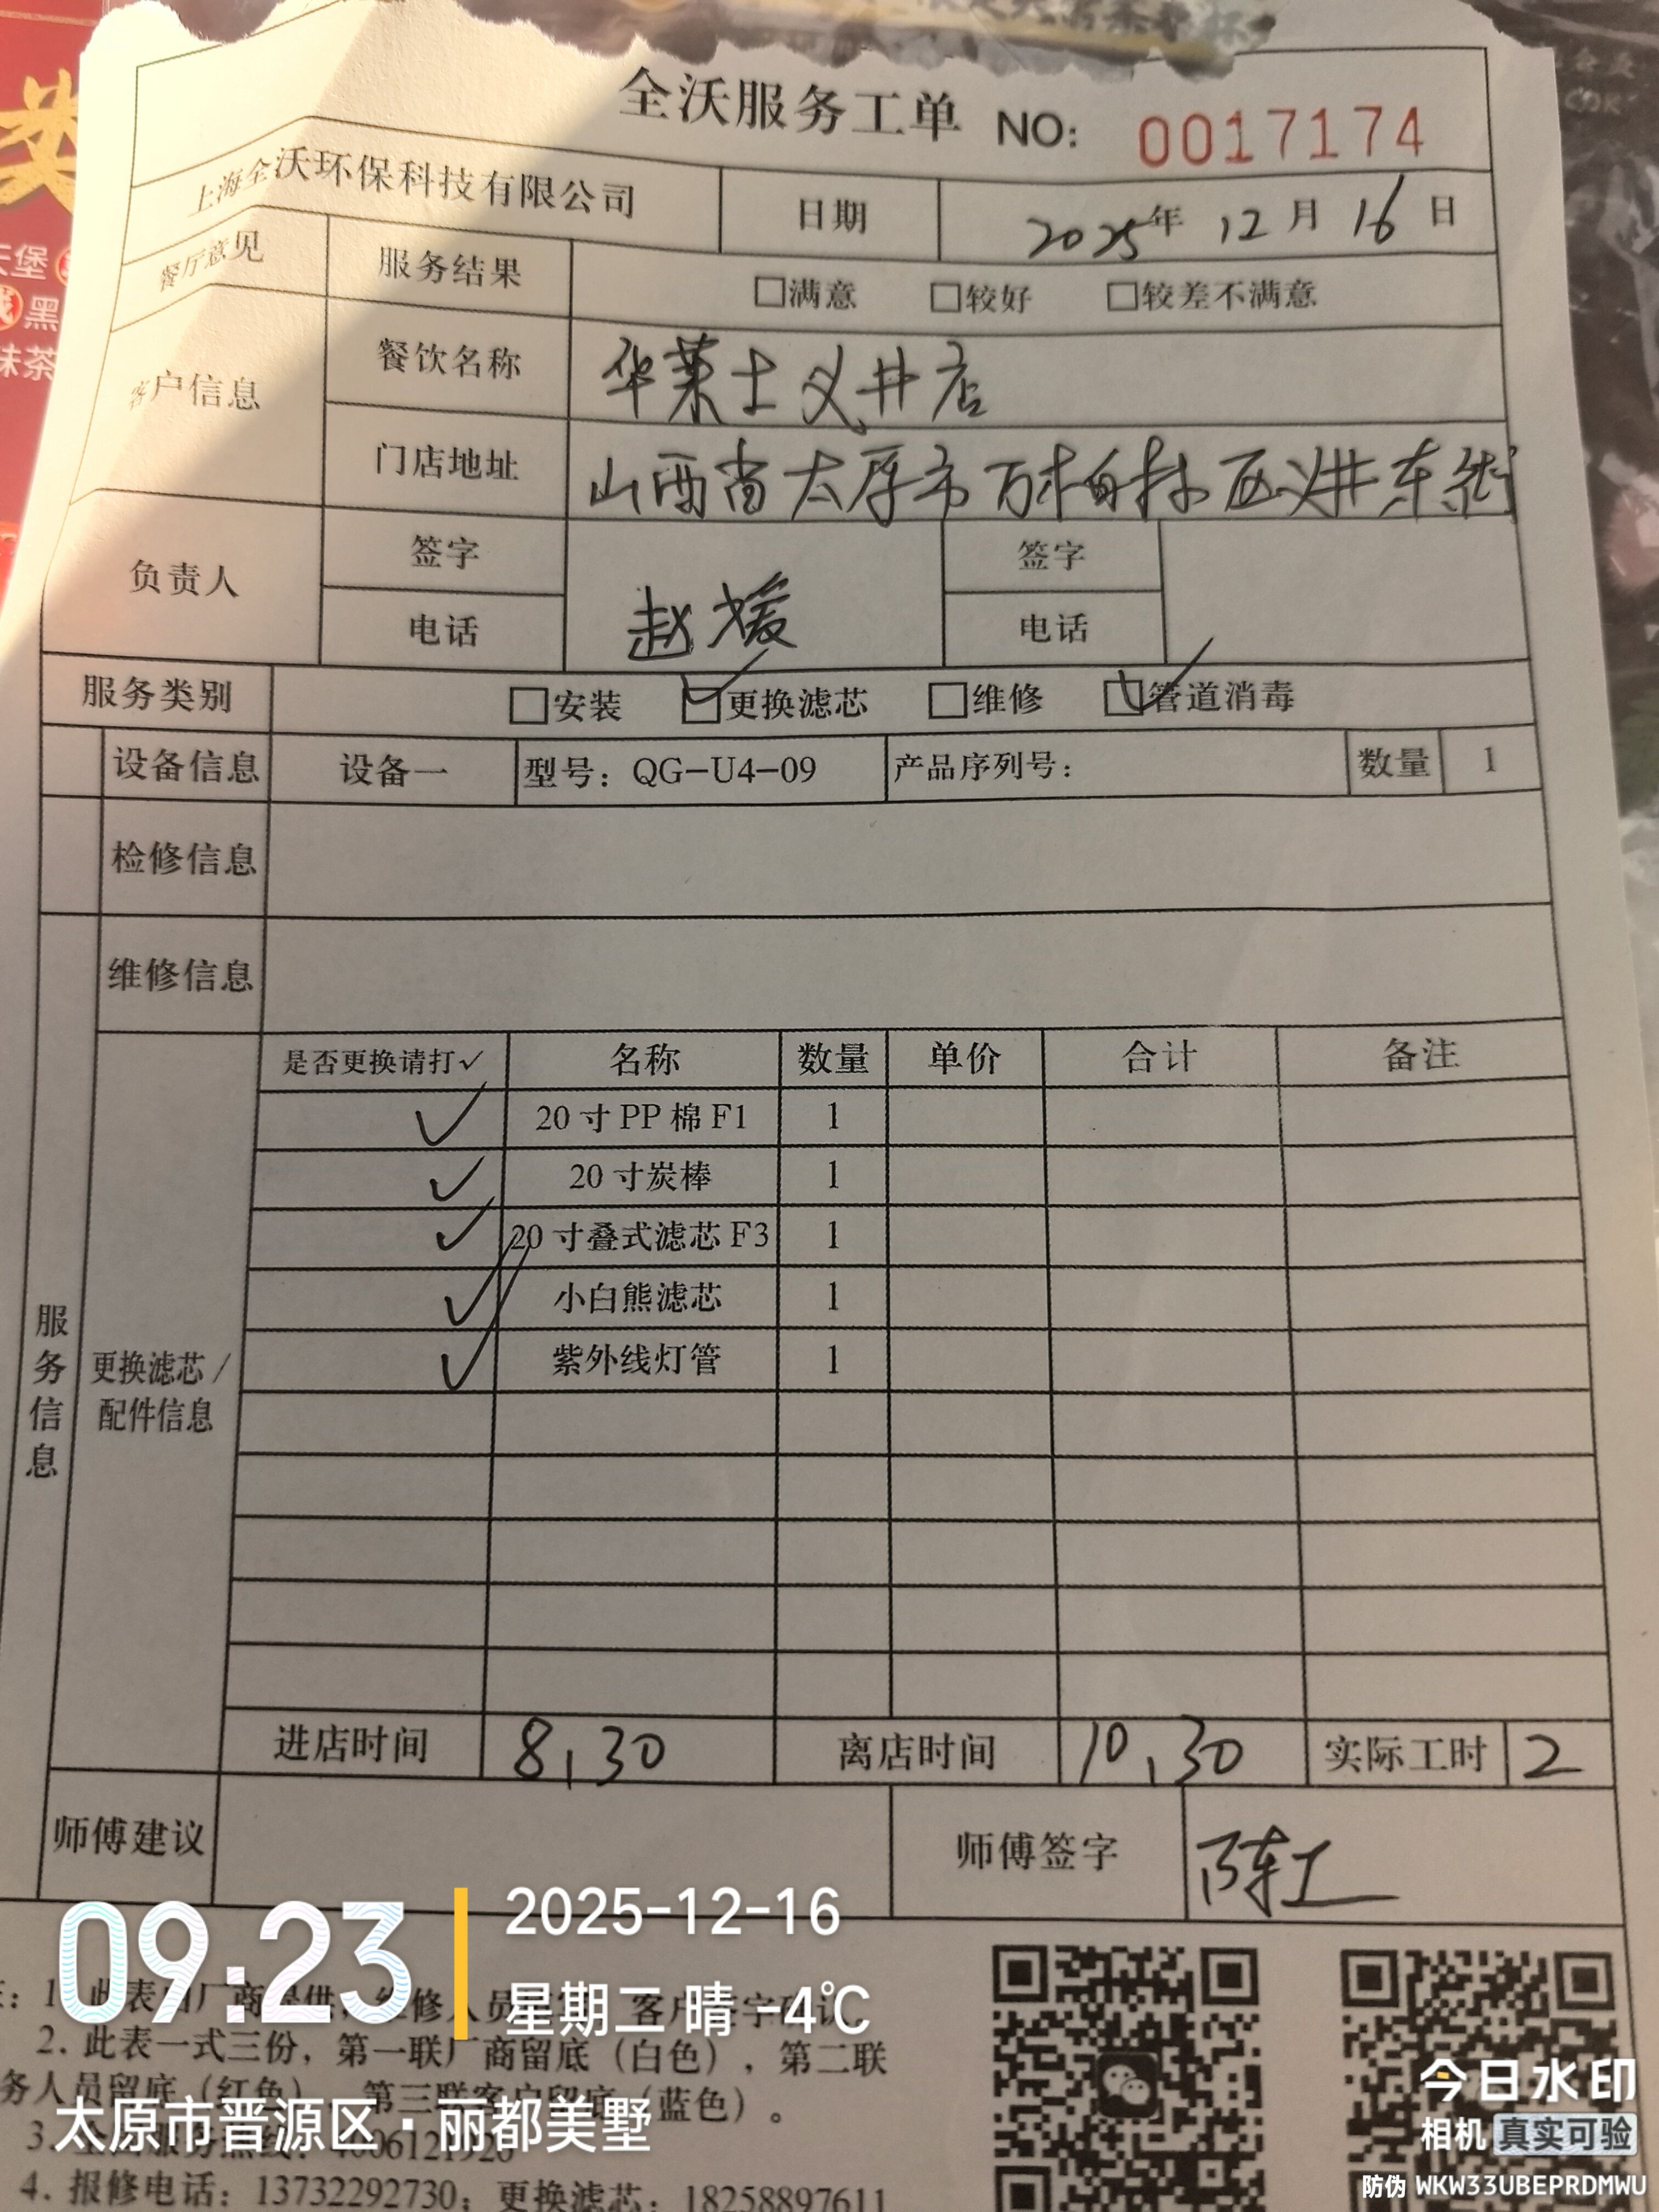 全沃服务工单 NO: 0017174
上海全沃环保科技有限公司 日期 2025年 12月 16日
餐厅意见 服务结果 □满意 □较好 □较差不满意
客户信息 餐饮名称 华莱士义井店
门店地址 山西省太原市万柏林区义井东街
负责人 签字 赵媛 签字
电话 电话
服务类别 □安装 ☑更换滤芯 □维修 ☑管道消毒
设备信息 设备一 型号：QG-U4-09 产品序列号： 数量 1
检修信息
维修信息
服务信息
更换滤芯/
配件信息
是否更换请打✓ 名称 数量 单价 合计 备注
✓ 20寸PP棉F1 1
✓ 20寸炭棒 1
✓ 20寸叠式滤芯F3 1
✓ 小白熊滤芯 1
✓ 紫外线灯管 1
进店时间 8,30 离店时间 10,30 实际工时 2
师傅建议 师傅签字 陈工
09:23
2025-12-16
星期二 晴 -4℃
2. 此表一式三份，第一联厂商留底（白色），第二联
务人员留底（红色），第三联客户留底（蓝色）。
太原市晋源区·丽都美墅
4. 报修电话：13732292730；更换滤芯：18258897611
今日水印
相机 真实可验
防伪 WKW33UBEPRDMWU